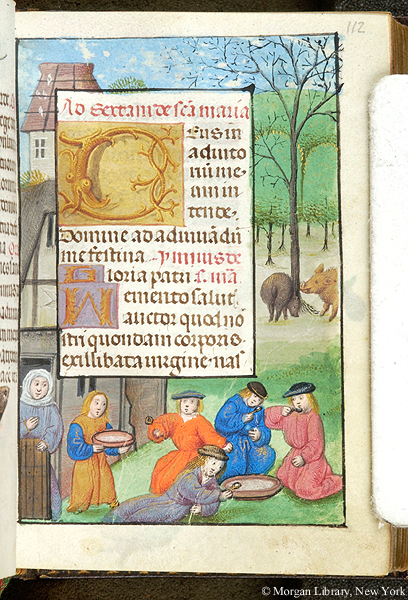 112
Ad Sextam de scā maria
Deus in
adiuto
riū me
um in
tende.
Domine ad adiuuādū
me festina. Ymnus de
Gloria patri s. mā
Memento salut
auctor quod no
stri quondam corporis
ex illibata uirgine nas
© Morgan Library, New York